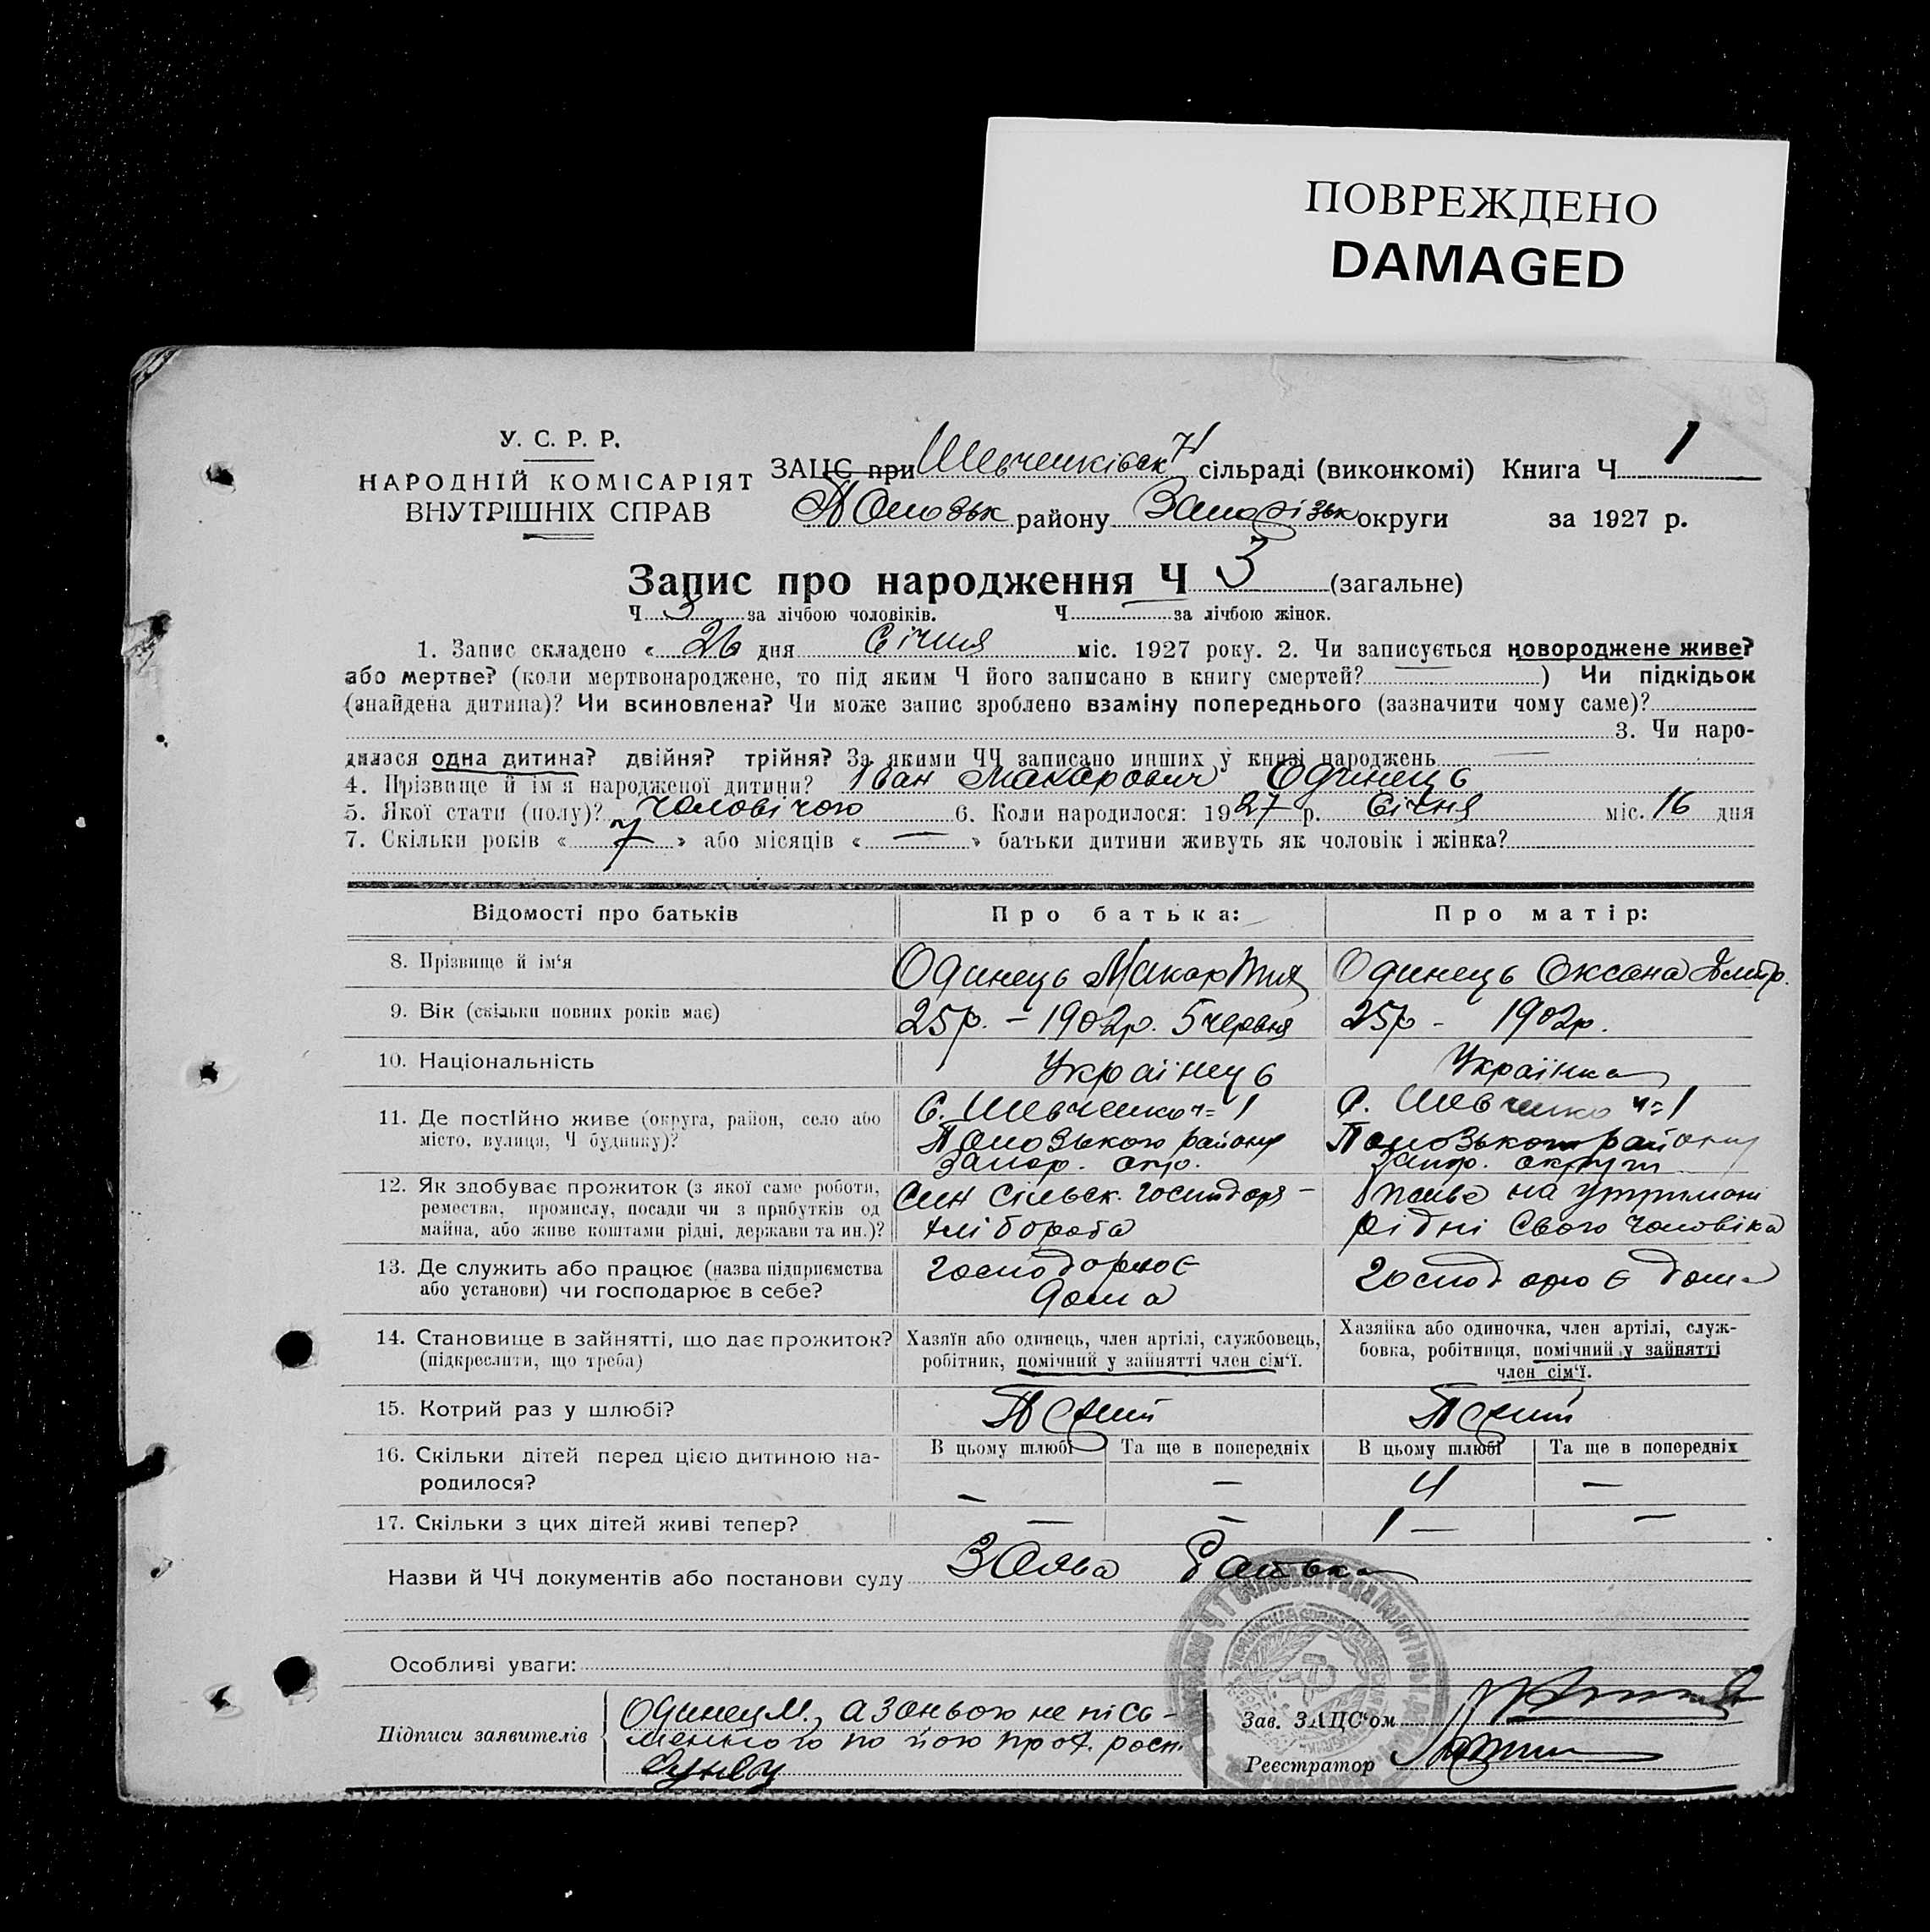 ПОВРЕЖДЕНО
DAMAGED
У. С. Р. Р.
НАРОДНІЙ КОМІСАРІЯТ
ВНУТРІШНІХ СПРАВ
ЗАЦС при Шевченківськ сільраді (виконкомі) Книга Ч 1
району Запорізьк округи за 1927 р.
Запис про народження Ч 3 (загальне)
Ч 3 за лічбою чоловіків. Ч за лічбою жінок.
1. Запис складено « 26 дня Січня міс. 1927 року. 2. Чи записується новороджене живе?
або мертве? (коли мертвонароджене, то під яким Ч його записано в книгу смертей? ) Чи підкідьок
(знайдена дитина)? Чи всиновлена? Чи може запис зроблено взаміну попереднього (зазначити чому саме)?
3. Чи наро-
дилася одна дитина? двійня? трійня? За якими ЧЧ записано инших у книзі народжень
4. Прізвище й ім'я народженої дитини? Іван Макарович Одинець
5. Якої стати (полу)? чоловічого 6. Коли народилося: 1927 р. Січня міс. 16 дня
7. Скільки років « 7 » або місяців « — » батьки дитини живуть як чоловік і жінка?
Відомості про батьків Про батька: Про матір:
8. Прізвище й ім'я Одинець Макар Одинець Оксана Дмитр.
9. Вік (скільки повних років має) 25р. – 1902р. 5 червня 25р – 1902р.
10. Національність Українець Українка
11. Де постійно живе (округа, район, село або
місто, вулиця, Ч будинку)?
С. Шевченко ч=1
району
Запор. окр.
С. Шевченко ч=1
району
Запор. округи
12. Як здобуває прожиток (з якої саме роботи,
ремества, промислу, посади чи з прибутків од
майна, або живе коштами рідні, держави та ин.)?
Син сільськ. господоря –
хлібороба
Живе на утримані
рідні свого чоловіка
13. Де служить або працює (назва підприємства
або установи) чи господарює в себе?
господорює
дома
господорює дома
14. Становище в зайнятті, що дає прожиток?
(підкреслити, що треба)
Хазяїн або одинець, член артілі, службовець,
робітник, помічний у зайнятті член сім'ї.
Хазяйка або одиночка, член артілі, служ-
бовка, робітниця, помічний у зайнятті
член сім'ї.
15. Котрий раз у шлюбі? Перший Перший
16. Скільки дітей перед цією дитиною на-
родилося?
В цьому шлюбі Та ще в попередніх В цьому шлюбі Та ще в попередніх
– – 4 –
17. Скільки з цих дітей живі тепер? – – 1 – –
Назви й ЧЧ документів або постанови суду Заява Батька
Особливі уваги:
Підписи заявителів
Одинец М., а за нього не пісь-
менного по його прох. росп.
Зав. ЗАЦС'ом
Реєстратор